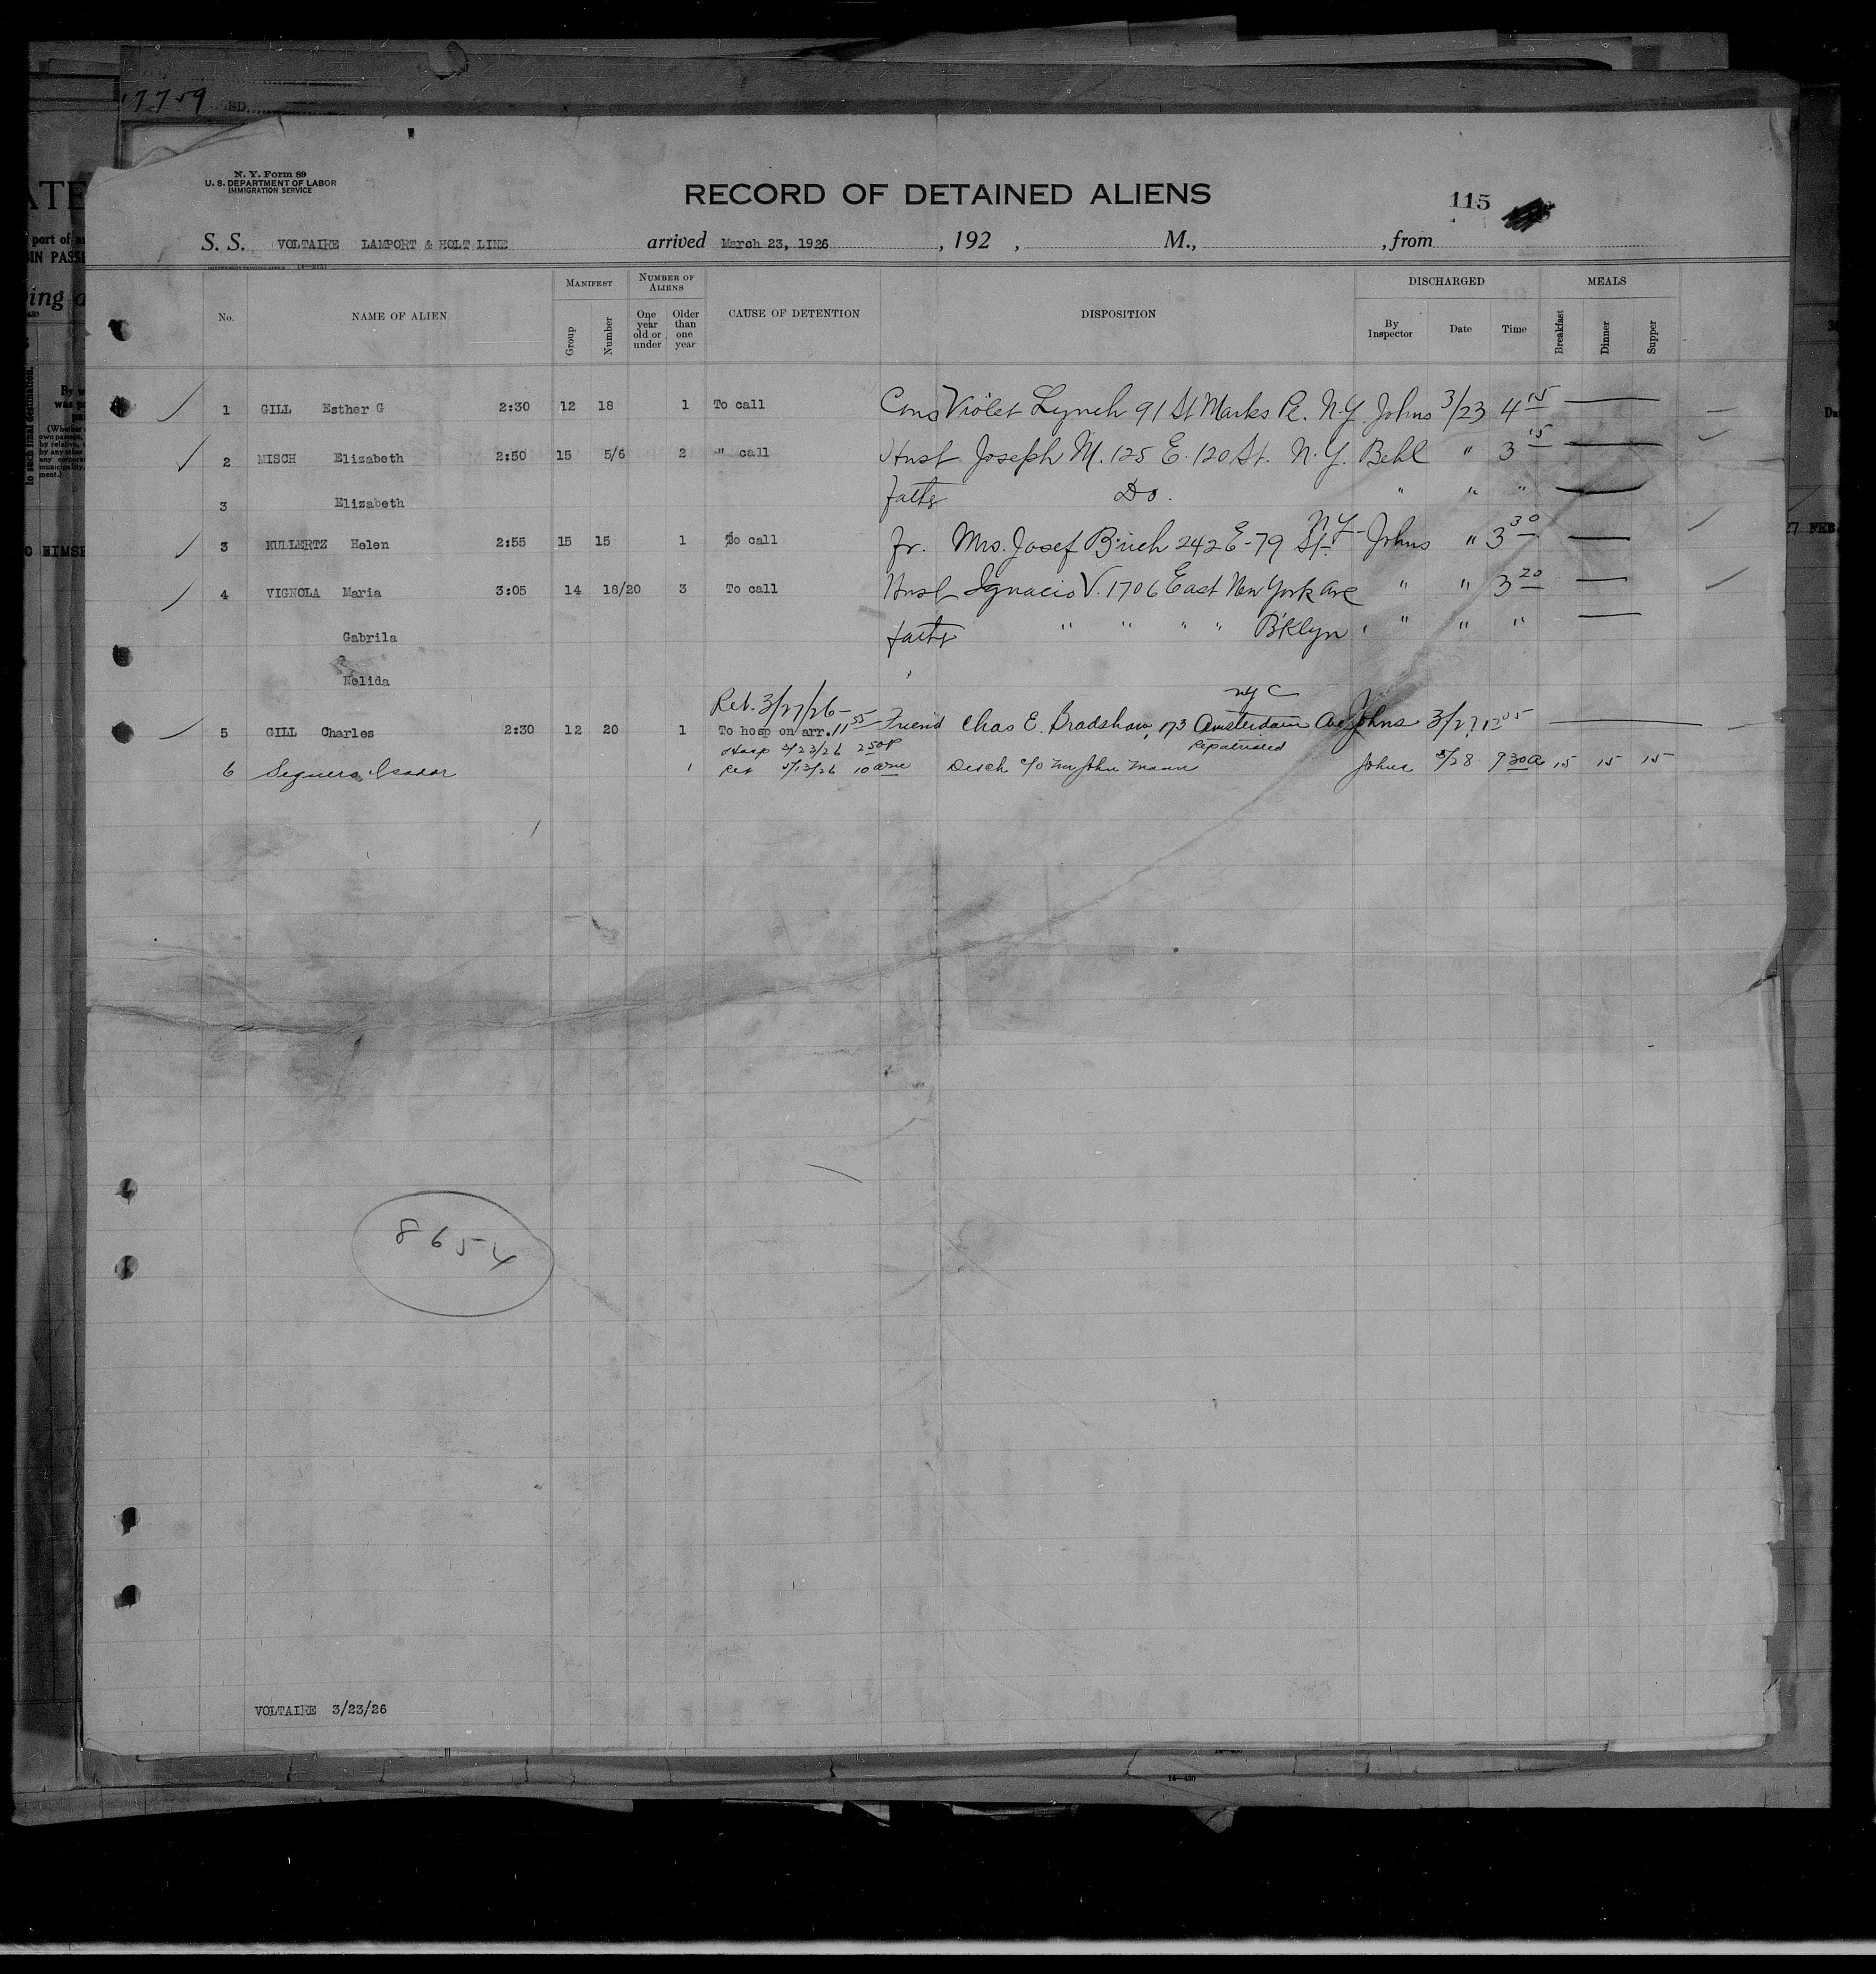 17759
N. Y. Form 89
U. S. DEPARTMENT OF LABOR
IMMIGRATION SERVICE
RECORD OF DETAINED ALIENS
115
S. S. VOLTAIRE LAMPORT & HOLT LINE arrived March 23, 1926, 192 , M., , from
No. NAME OF ALIEN MANIFEST Group Number NUMBER OF ALIENS One year old or under Older than one year CAUSE OF DETENTION DISPOSITION DISCHARGED By Inspector Date Time MEALS Breakfast Dinner Supper
1 GILL Esther G 2:30 12 18 1 To call Cons Violet Lynch 91 St Marks Pl. N.Y. Johns 3/23 4 15
2 MISCH Elizabeth 2:50 15 5/6 2 " call Husb Joseph M. 125 E. 120 St. N.Y. Behl " 3 15
3 Elizabeth Do. " " "
3 KULLERTZ Helen 2:55 15 15 1 To call Fr. Mrs. Josef 242 E-79 St. N.Y- Johns " 3 30
4 VIGNOLA Maria 3:05 14 18/20 3 To call Husb Ignacio V. 1706 East New York Ave " " 3 20
Gabrila " " " " B'klyn, " " "
Nelida
Ret. 3/27/26- 11 55 NYC
5 GILL Charles 2:30 12 20 1 To hosp on arr. Friend Chas E. Bradshaw, 173 Amsterdam Ave Johns 3/27 12 05
Hosp 3/23/26 2 50P Repatriated
6 1 Ret 5/13/26 10 Disch c/o Mr John Mann Johns 5/28 9 30a 15 15 15
8654
VOLTAIRE 3/23/26
16-430